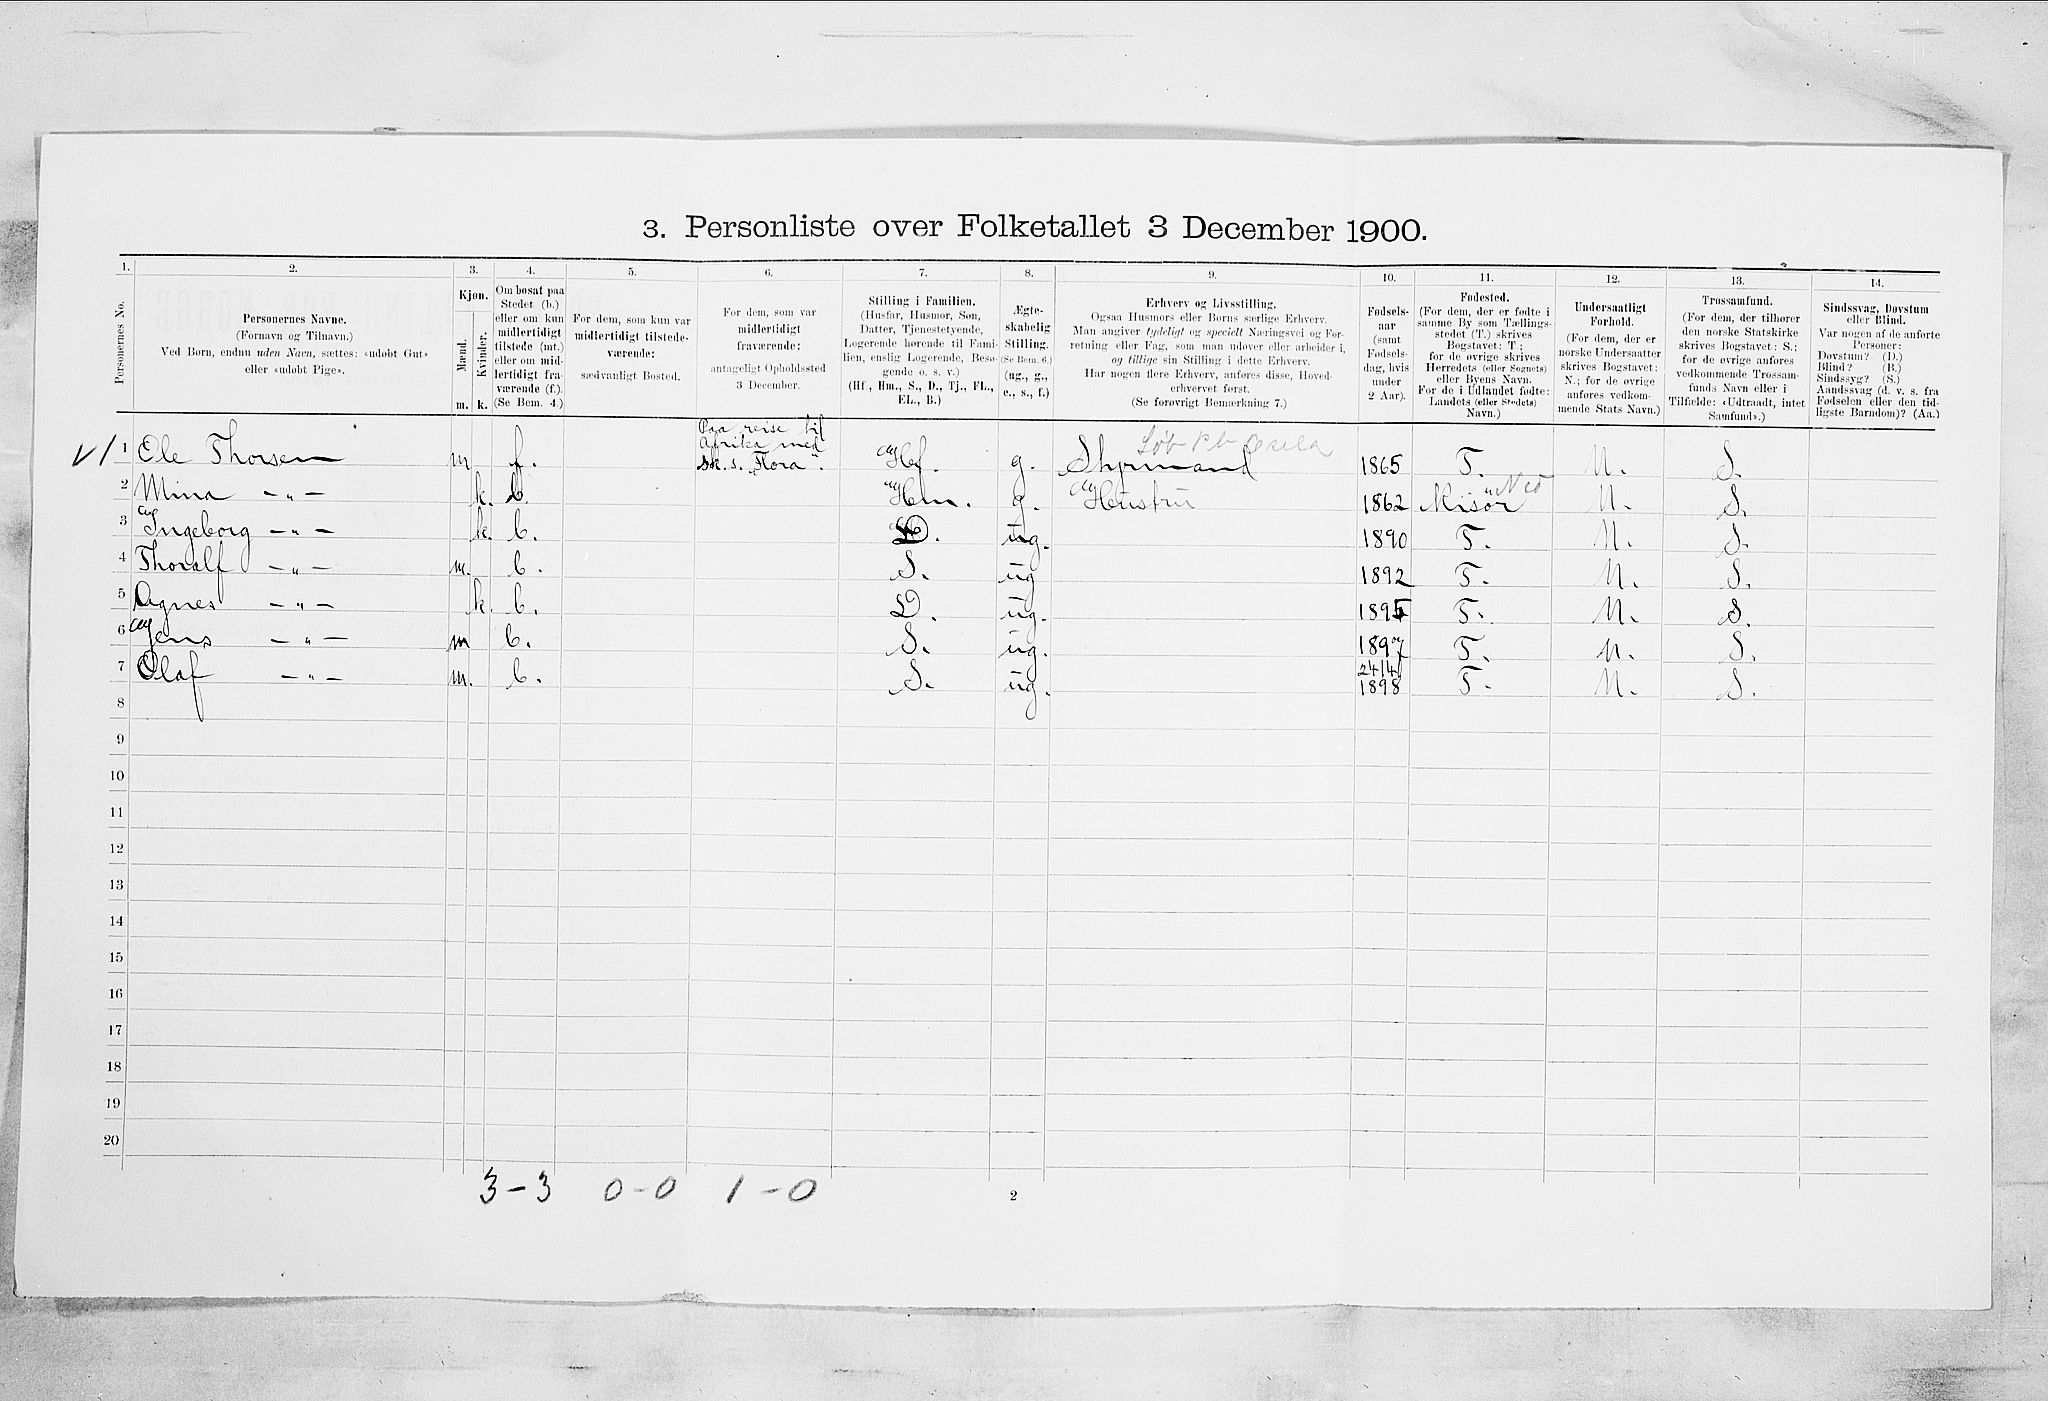 3. Personliste over Folketallet 3 December 1900.
1. 2. 3. 4. 5. 6. 7. 8. 9. 10. 11. 12. 13. 14.
Personernes No.
Personernes Navne.
(Fornavn og Tilnavn.)
Ved Børn, endnu uden Navn, sættes: «udøbt Gut»
eller «udøbt Pige».
Kjøn.
Mænd.
Kvinder.
m. k.
Om bosat paa
Stedet (b.)
eller om kun
midlertidigt
tilstede (mt.)
eller om mid-
lertidigt fra-
værende (f.)
(Se Bem. 4.)
For dem, som kun var
midlertidigt tilstede-
værende:
sædvanligt Bosted.
For dem, som var
midlertidigt
fraværende:
antageligt Opholdssted
3 December.
Stilling i Familien.
(Husfar, Husmor, Søn,
Datter, Tjenestetyende,
Logerende hørende til Fami-
lien, enslig Logerende, Besø-
gende o. s. v.)
(Hf., Hm., S., D., Tj., FL.,
EL., B.)
Ægte-
skabelig
Stilling.
(Se Bem. 6.)
(ug., g.,
e., s., f.)
Erhverv og Livsstilling.
Ogsaa Husmors eller Børns særlige Erhverv.
Man angiver tydeligt og specielt Næringsvei og For-
retning eller Fag, som man udøver eller arbeider i,
og tillige sin Stilling i dette Erhverv.
Har nogen flere Erhverv, anføres disse, Hoved-
erhvervet først.
(Se forøvrigt Bemærkning 7.)
Fødsels-
aar
(samt
Fødsels-
dag, hvis
under
2 Aar).
Fødested.
(For dem, der er fødte i
samme By som Tællings-
stedet (T.) skrives
Bogstavet: T;
for de øvrige skrives
Herredets (eller Sognets)
eller Byens Navn.
For de i Udlandet fødte:
Landets (eller Stedets)
Navn.)
Undersaatligt
Forhold.
(For dem, der er
norske Undersaatter
skrives Bogstavet:
N.; for de øvrige
anføres vedkom-
mende Stats Navn.)
Trossamfund.
(For dem, der tilhører
den norske Statskirke
skrives Bogstavet: S.;
for de øvrige anføres
vedkommende Trossam-
funds Navn eller i
Tilfælde: «Udtraadt, intet
Samfund».)
Sindssvag, Døvstum
eller Blind.
Var nogen af de anførte
Personer:
Døvstum? (D.)
Blind? (B.)
Sindssyg? (S.)
Aandssvag (d. v. s. fra
Fødselen eller den tid-
ligste Barndom)? (Aa.)
Paa reise til
Afrika med
sk. s. "Flora".
1 Ole Thorsen m f. Hf. g. Styrmand 1865 T. N. S.
2 Mina -"- k. b. Hm. g. Hustru 1862 N. S.
3 Ingeborg -"- k. b. D. ug. 1890 T. N. S.
4 Thoralf -"- m. b. S. ug 1892 T. N. S.
5 Agnes -"- k. b. D. ug. 1895 T. N. S.
6 Jens -"- m b. S. ug. 1897 T. N. S.
24/4
7 Olaf -"- m. b. S. ug. 1898 T. N. S.
8
9
10
11
12
13
14
15
16
17
18
19
20
3-3 0-0 1-0
2